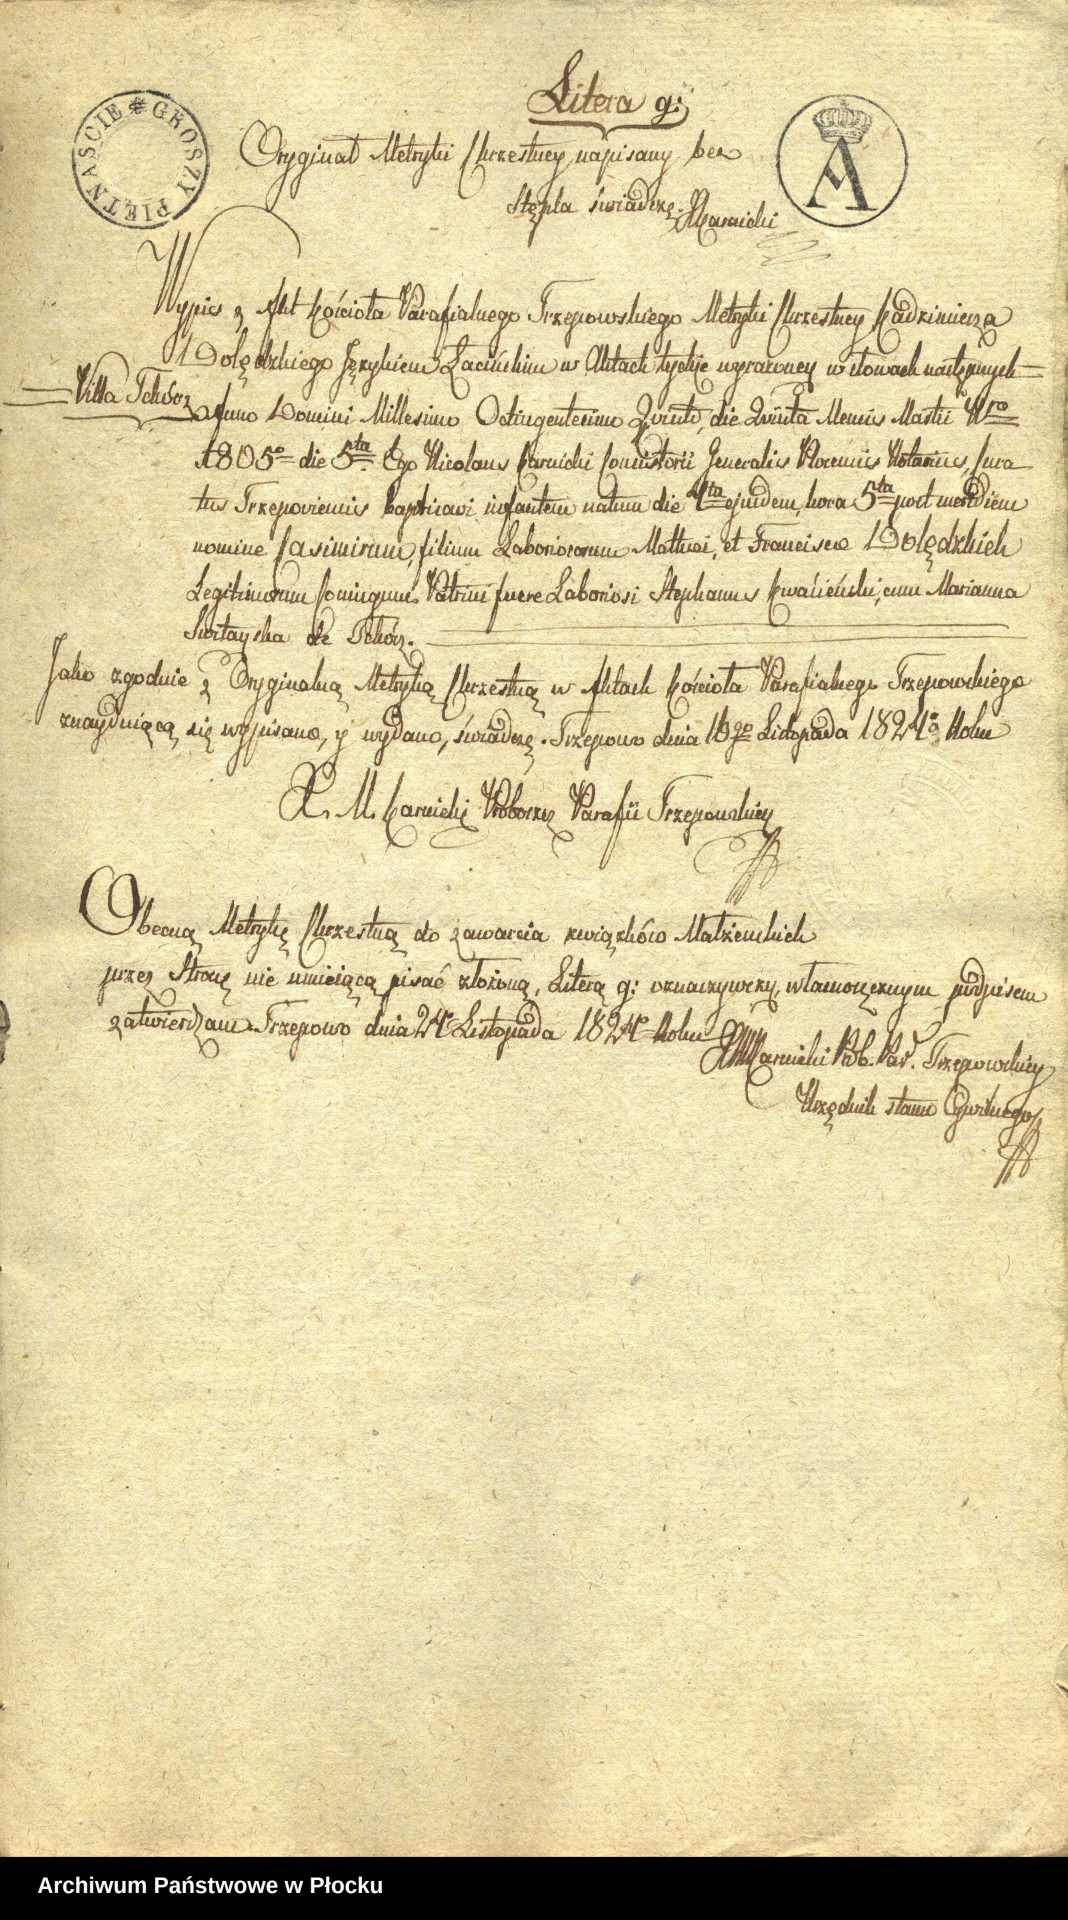 Litera g:
GROSZY PIĘTNAŚCIE
A
Oryginał Metryki Chrzestney napisany bez
stępla świadczę. XKarnicki
Wypis z Akt Kościoła Parafialnego Trzepowskiego Metryki Chrzestney Kadzimierza
Dolędzkiego Językiem Łacińskim w Aktach tychże wyrażoney w słowach następnych
Villa Tchórz
Anno Domini Millesimo Octingentesimo Quinto, die Quinta Mensis Martii Vro
1805o die 5ta Ego Nicolaus Karnicki Consistorii Generalis Plocensis Notarius, Cura
tus Trzepoviensis baptisavi infantem natum die 4ta ejusdem, hora 5ta post meridiem
nomine Casimirum, filium Laboriosorum Mathei, et Francisce Dolędzkich
Legitimorum Conjugum. Patrini fuere Laboriosi Stephanus Kwasieński, cum Marianna
de Tchórz.
Jako zgodnie z Oryginalną Metryką Chrzestną w Aktach Kościoła Parafialnego Trzepowskiego
znayduiącą się wypisano, y wydano, świadczę. Trzepowo dnia 16go Listopada 1824o Roku
X. M. Karnicki Proboszcz Parafii Trzepowskiey
Obecną Metrykę Chrzestną do zawarcia związków Małżeńskich
przez Stronę nie umieiącą pisać złożoną, Literą g: oznaczywszy, własnoręcznym podpisem
zatwierdzam. Trzepowo dnia 24o Listopada 1824o Roku XMKarnicki Prob. Par. Trzepowskiey
Urzędnik stanu Cywilnego
Archiwum Państwowe w Płocku